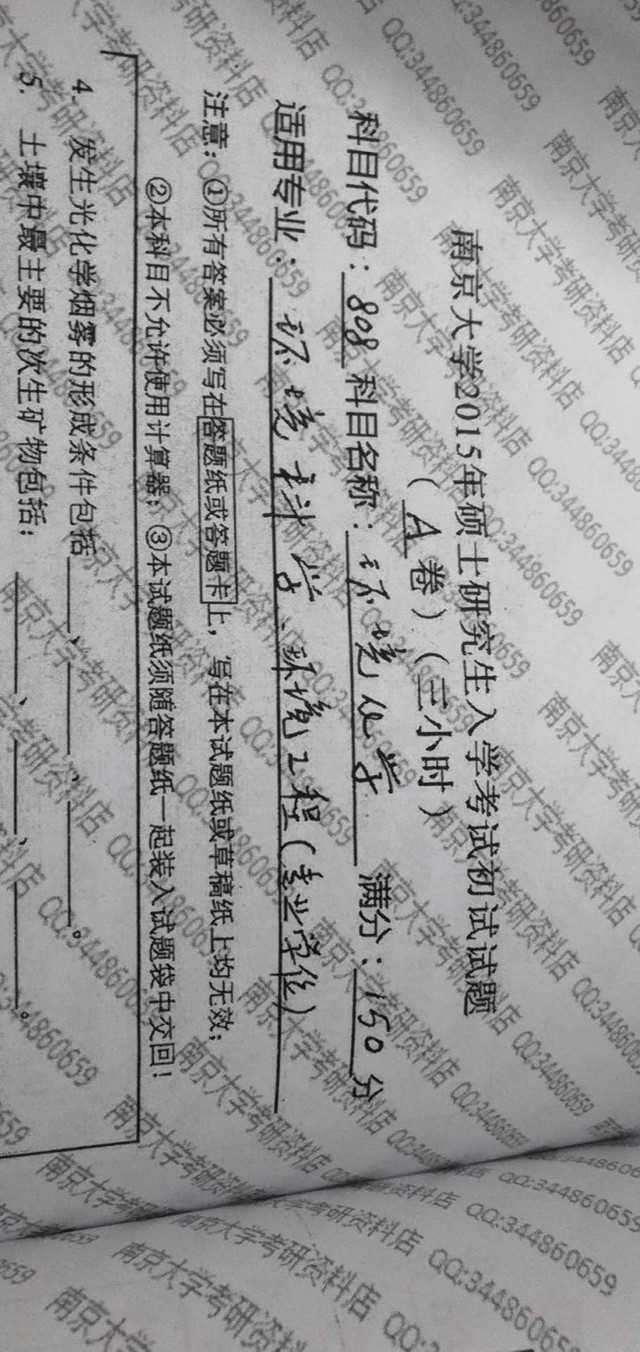 南京大学2015年硕士研究生入学考试初试试题
（A卷）（三小时）
科目代码：808 科目名称：环境化学 满分：150分
适用专业：环境科学、环境工程（专业学位）
注意：①所有答案必须写在答题纸或答题卡上，写在本试题纸或草稿纸上均无效；
②本科目不允许使用计算器；③本试题纸须随答题纸一起装入试题袋中交回！
4. 发生光化学烟雾的形成条件包括____、____、____。
5. 土壤中最主要的次生矿物包括：____、____、____。
南京大学考研资料店 QQ:344860659